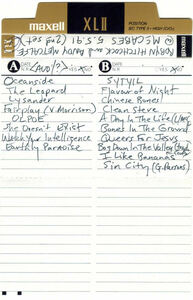 maxell
XLII
POSITION
ROBYN HITCHCOCK and Andy METCALFE
McCABES 5.5.91 (2nd Set)
A DATE
B DATE
Oceanside
The Leopard
Lysander
Fairplay (V. Morrison)
OLPOE
She Doesn't Exist
Watch Your Intelligence
Earthly Paradise
SYTYLL
Flavour of Night
Chinese Bones
Clean Steve
A Day In The Life
Bones In The Ground
Queers For Jesus
Bog Down In The Valley
I Like Bananas
Sin City (G. Parsons)